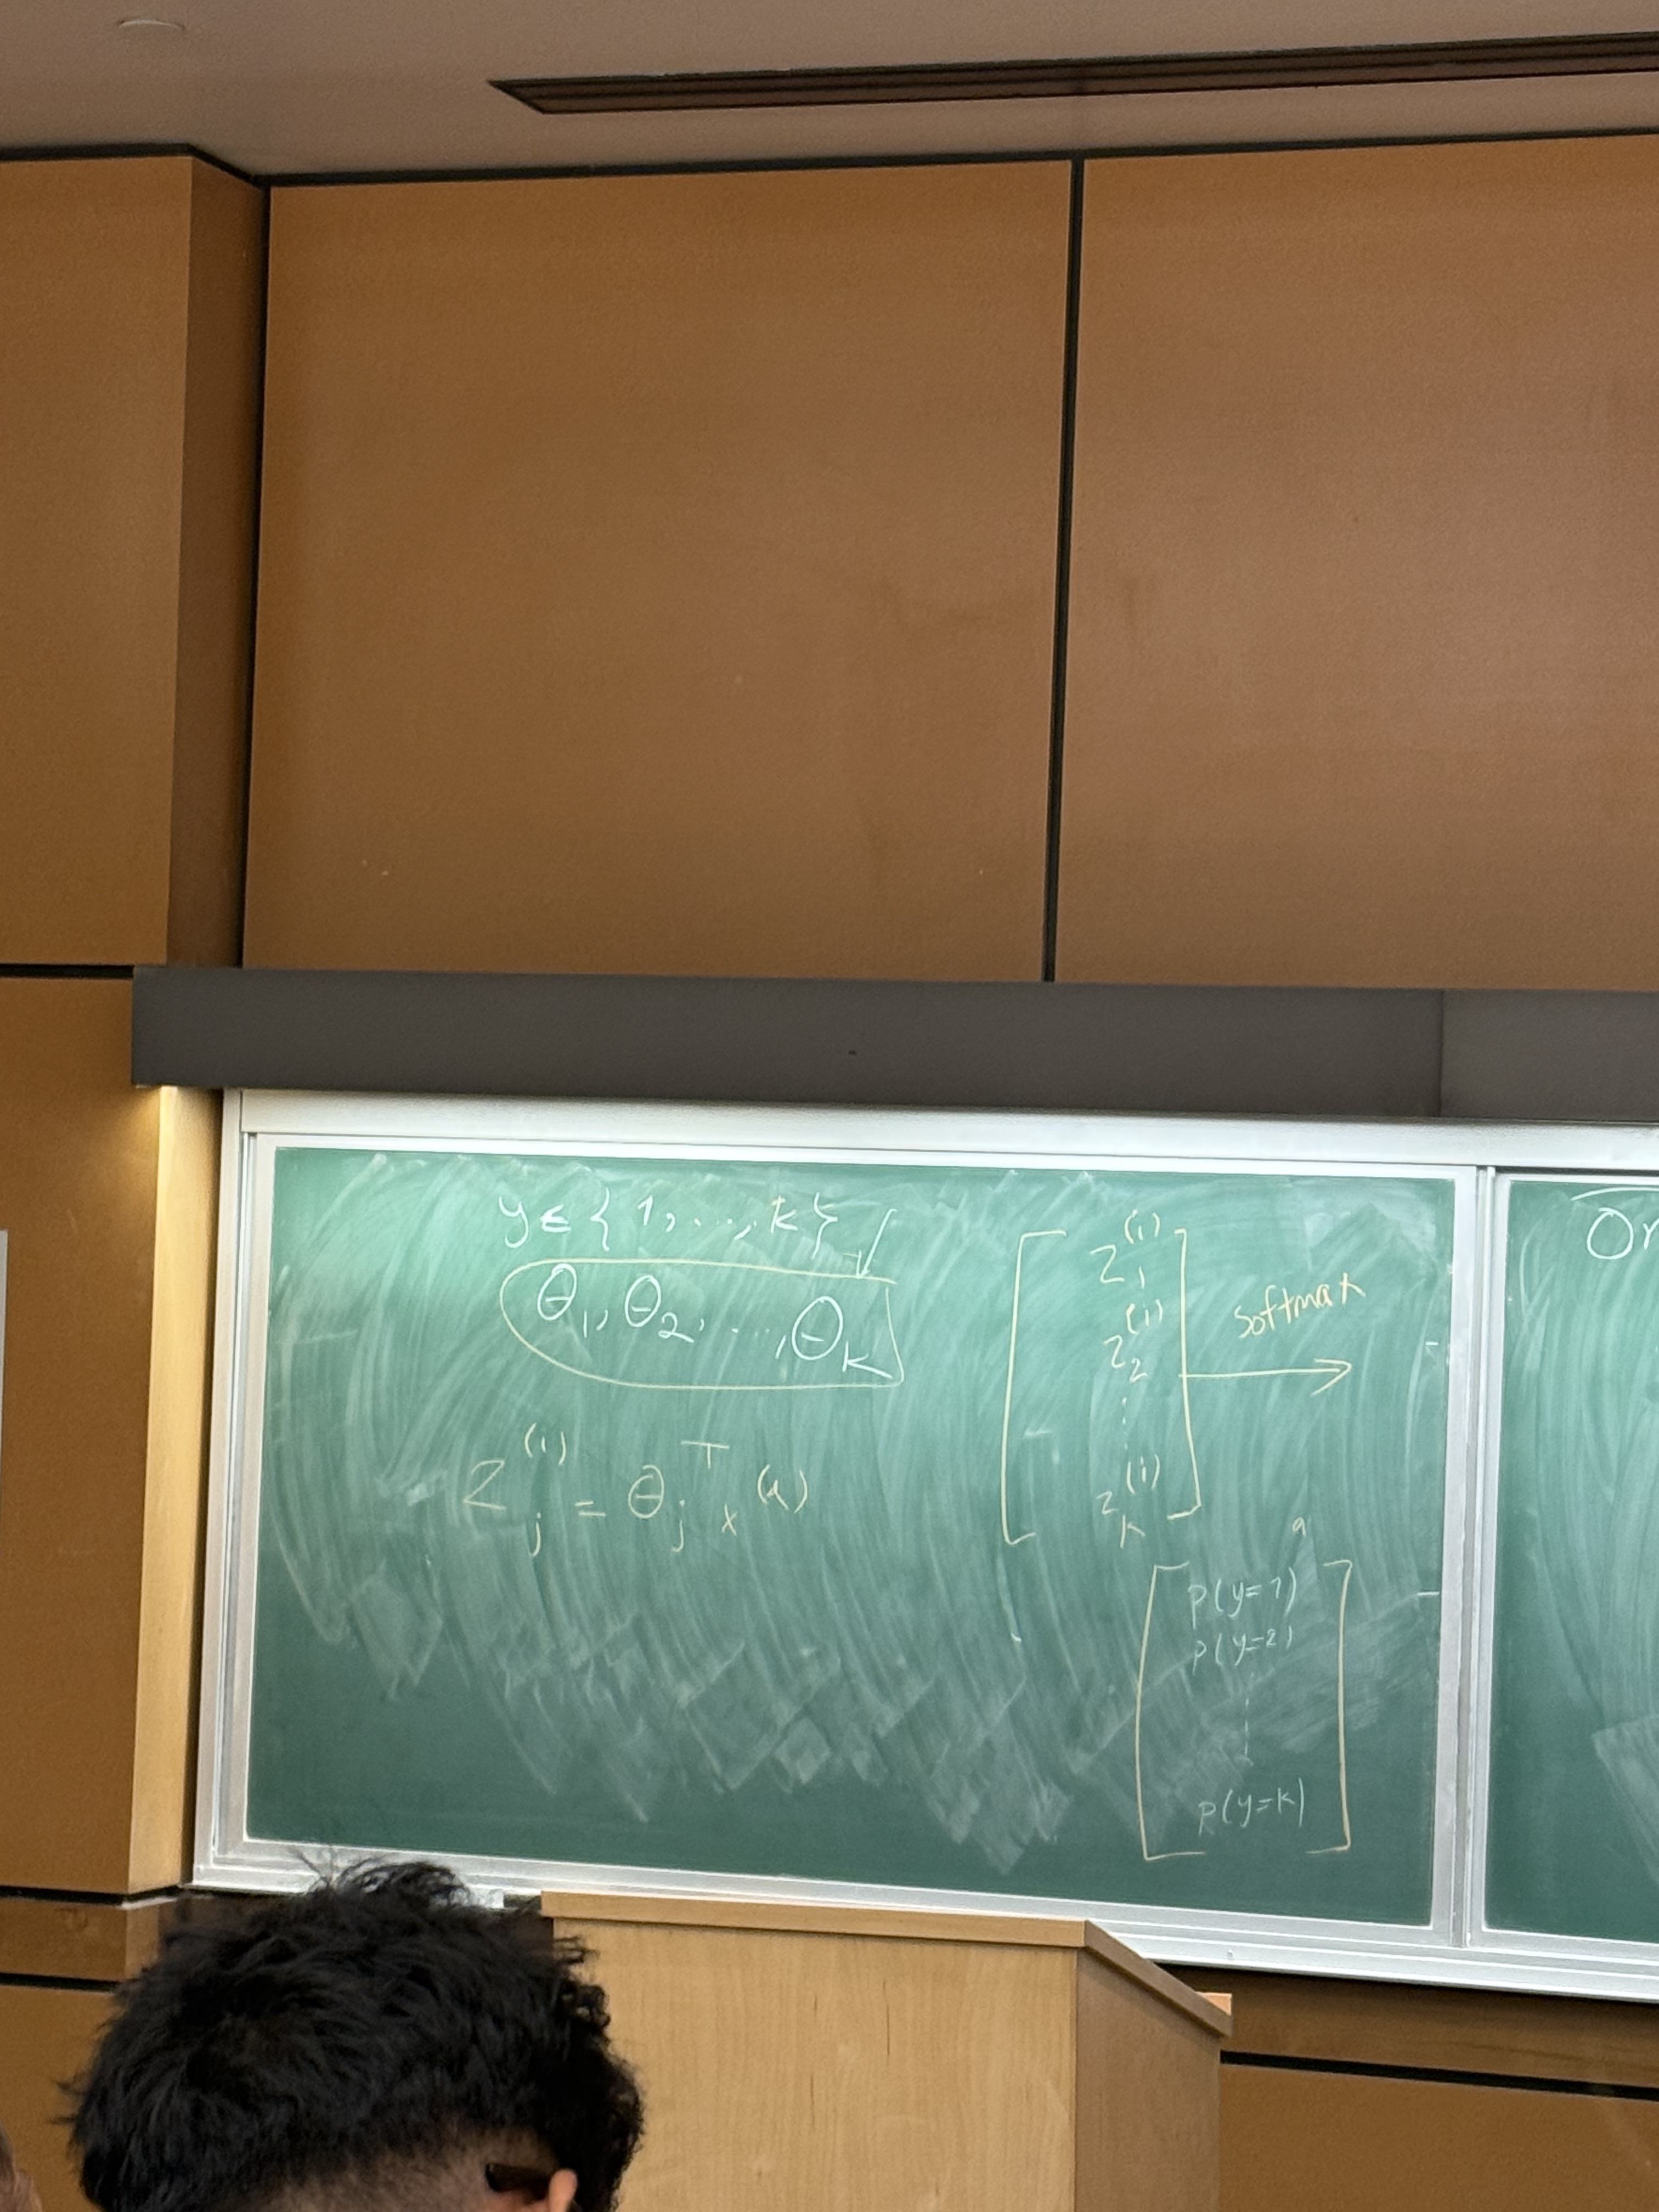 y ∈ {1, ..., k}
θ₁, θ₂, ..., θₖ
Zⱼ⁽ⁱ⁾ = θⱼᵀ x⁽ⁱ⁾
Z₁⁽ⁱ⁾
Z₂⁽ⁱ⁾
⋮
Zₖ⁽ⁱ⁾
softmax
P(y=1)
P(y=2)
⋮
P(y=k)
Or